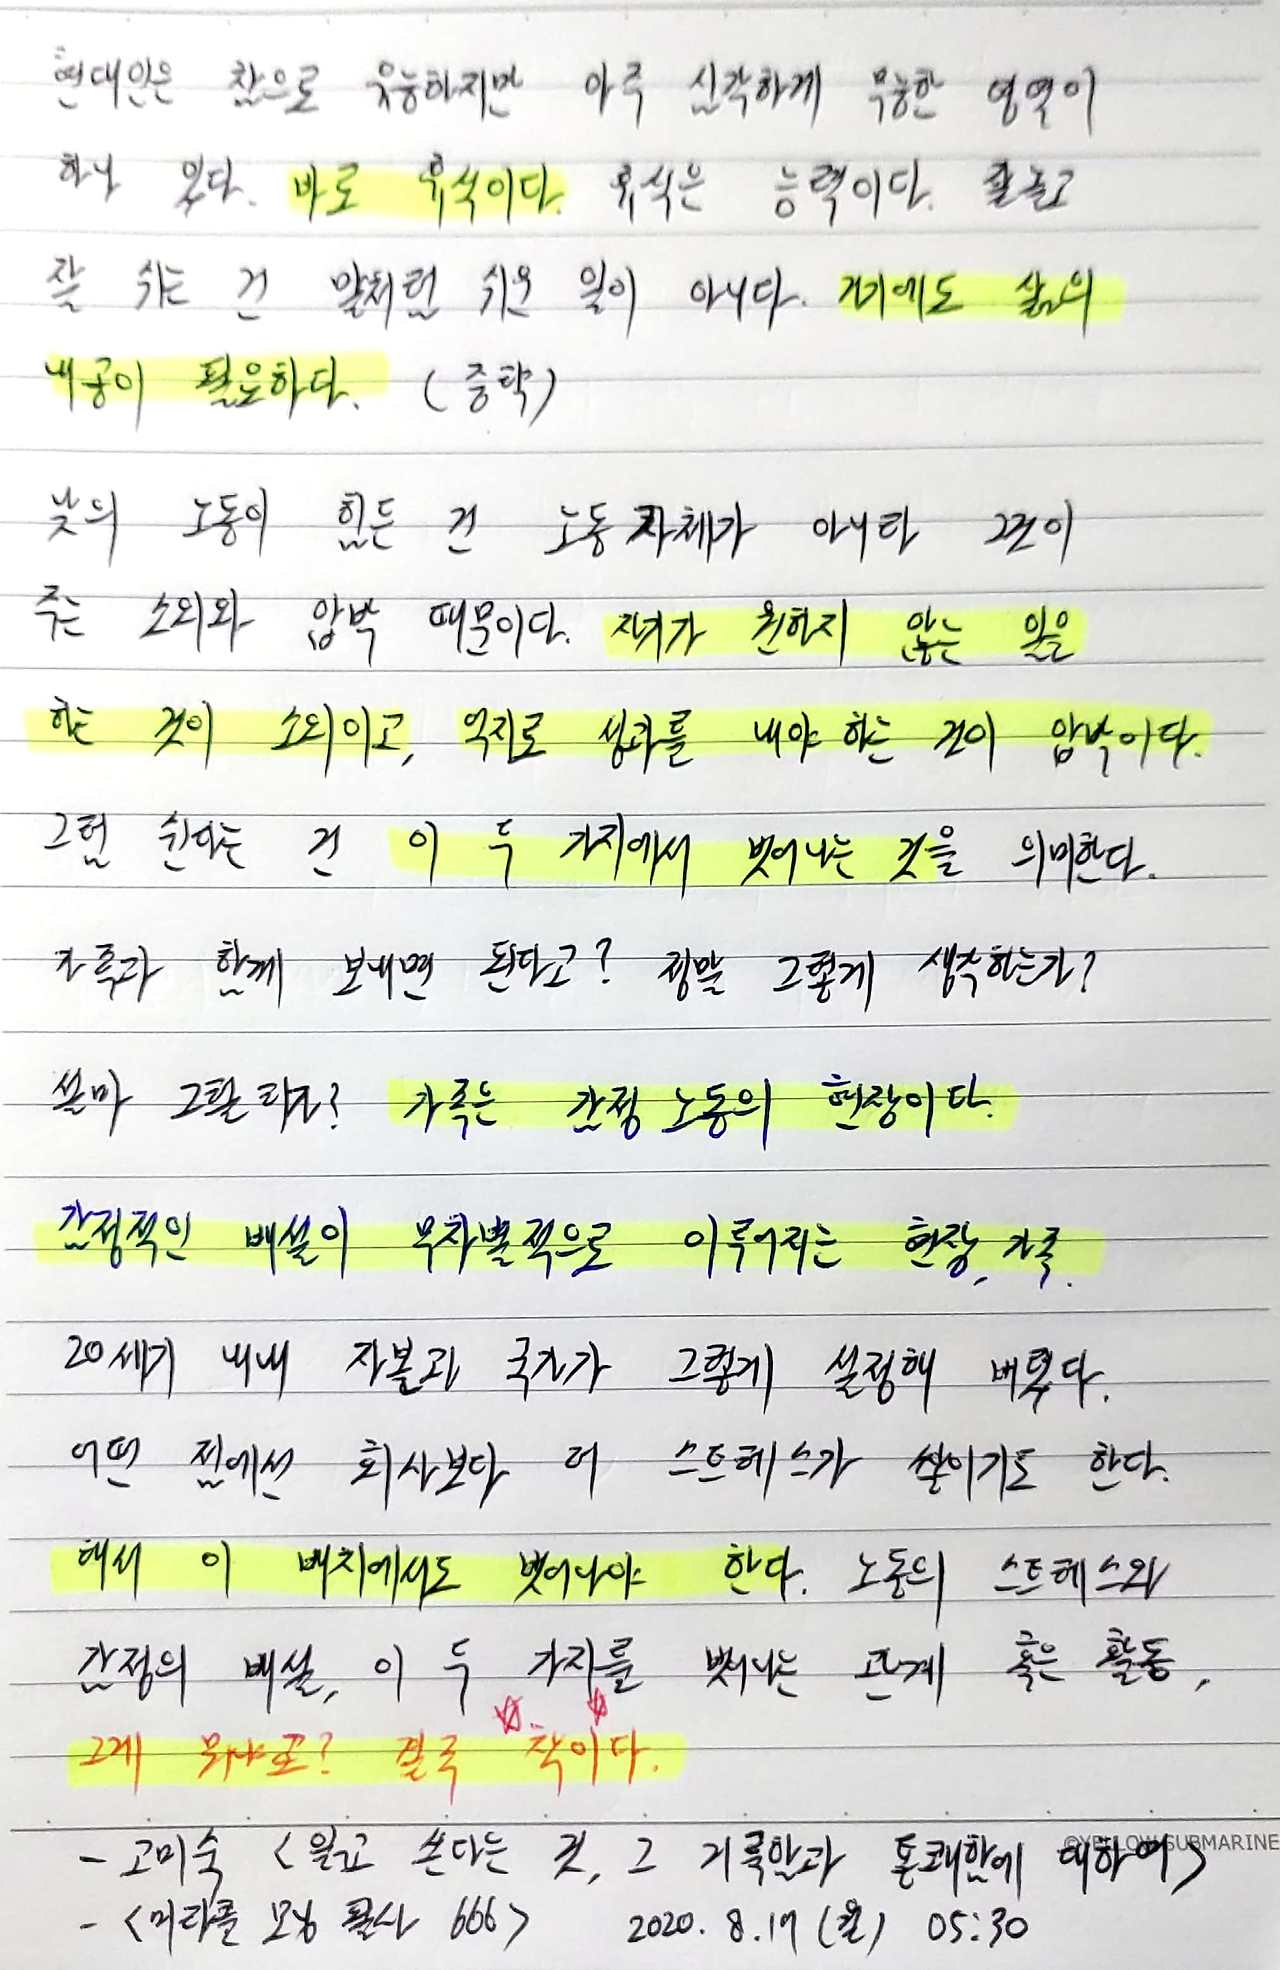 현대인은 참으로 유능하지만 아주 심각하게 무능한 영역이
하나 있다. 바로 휴식이다. 휴식은 능력이다. 잘 놀고
잘 쉬는 건 말처럼 쉬운 일이 아니다. 거기에도 삶의
내공이 필요하다. (중략)
낮의 노동이 힘든 건 노동 자체가 아니라 그것이
주는 소외와 압박 때문이다. 자기가 원하지 않는 일을
하는 것이 소외이고, 억지로 성과를 내야 하는 것이 압박이다.
그럼 쉰다는 건 이 두 가지에서 벗어나는 것을 의미한다.
가족과 함께 보내면 된다고? 정말 그렇게 생각하는가?
설마 그럴리가? 가족은 감정 노동의 현장이다.
감정적인 배설이 무차별적으로 이루어지는 현장, 가족.
20세기 내내 자본과 국가가 그렇게 설정해 버렸다.
어떤 점에선 회사보다 더 스트레스가 쌓이기도 한다.
해서 이 배치에서도 벗어나야 한다. 노동의 스트레스와
감정의 배설, 이 두 가지를 벗어나는 관계 혹은 활동,
그게 뭐냐고? 결국 책이다.
- 고미숙 <읽고 쓴다는 것, 그 거룩함과 통쾌함에 대하여>
©YELLOW SUBMARINE
- <미라클 모닝 필사 666> 2020. 8.17 (월) 05:30